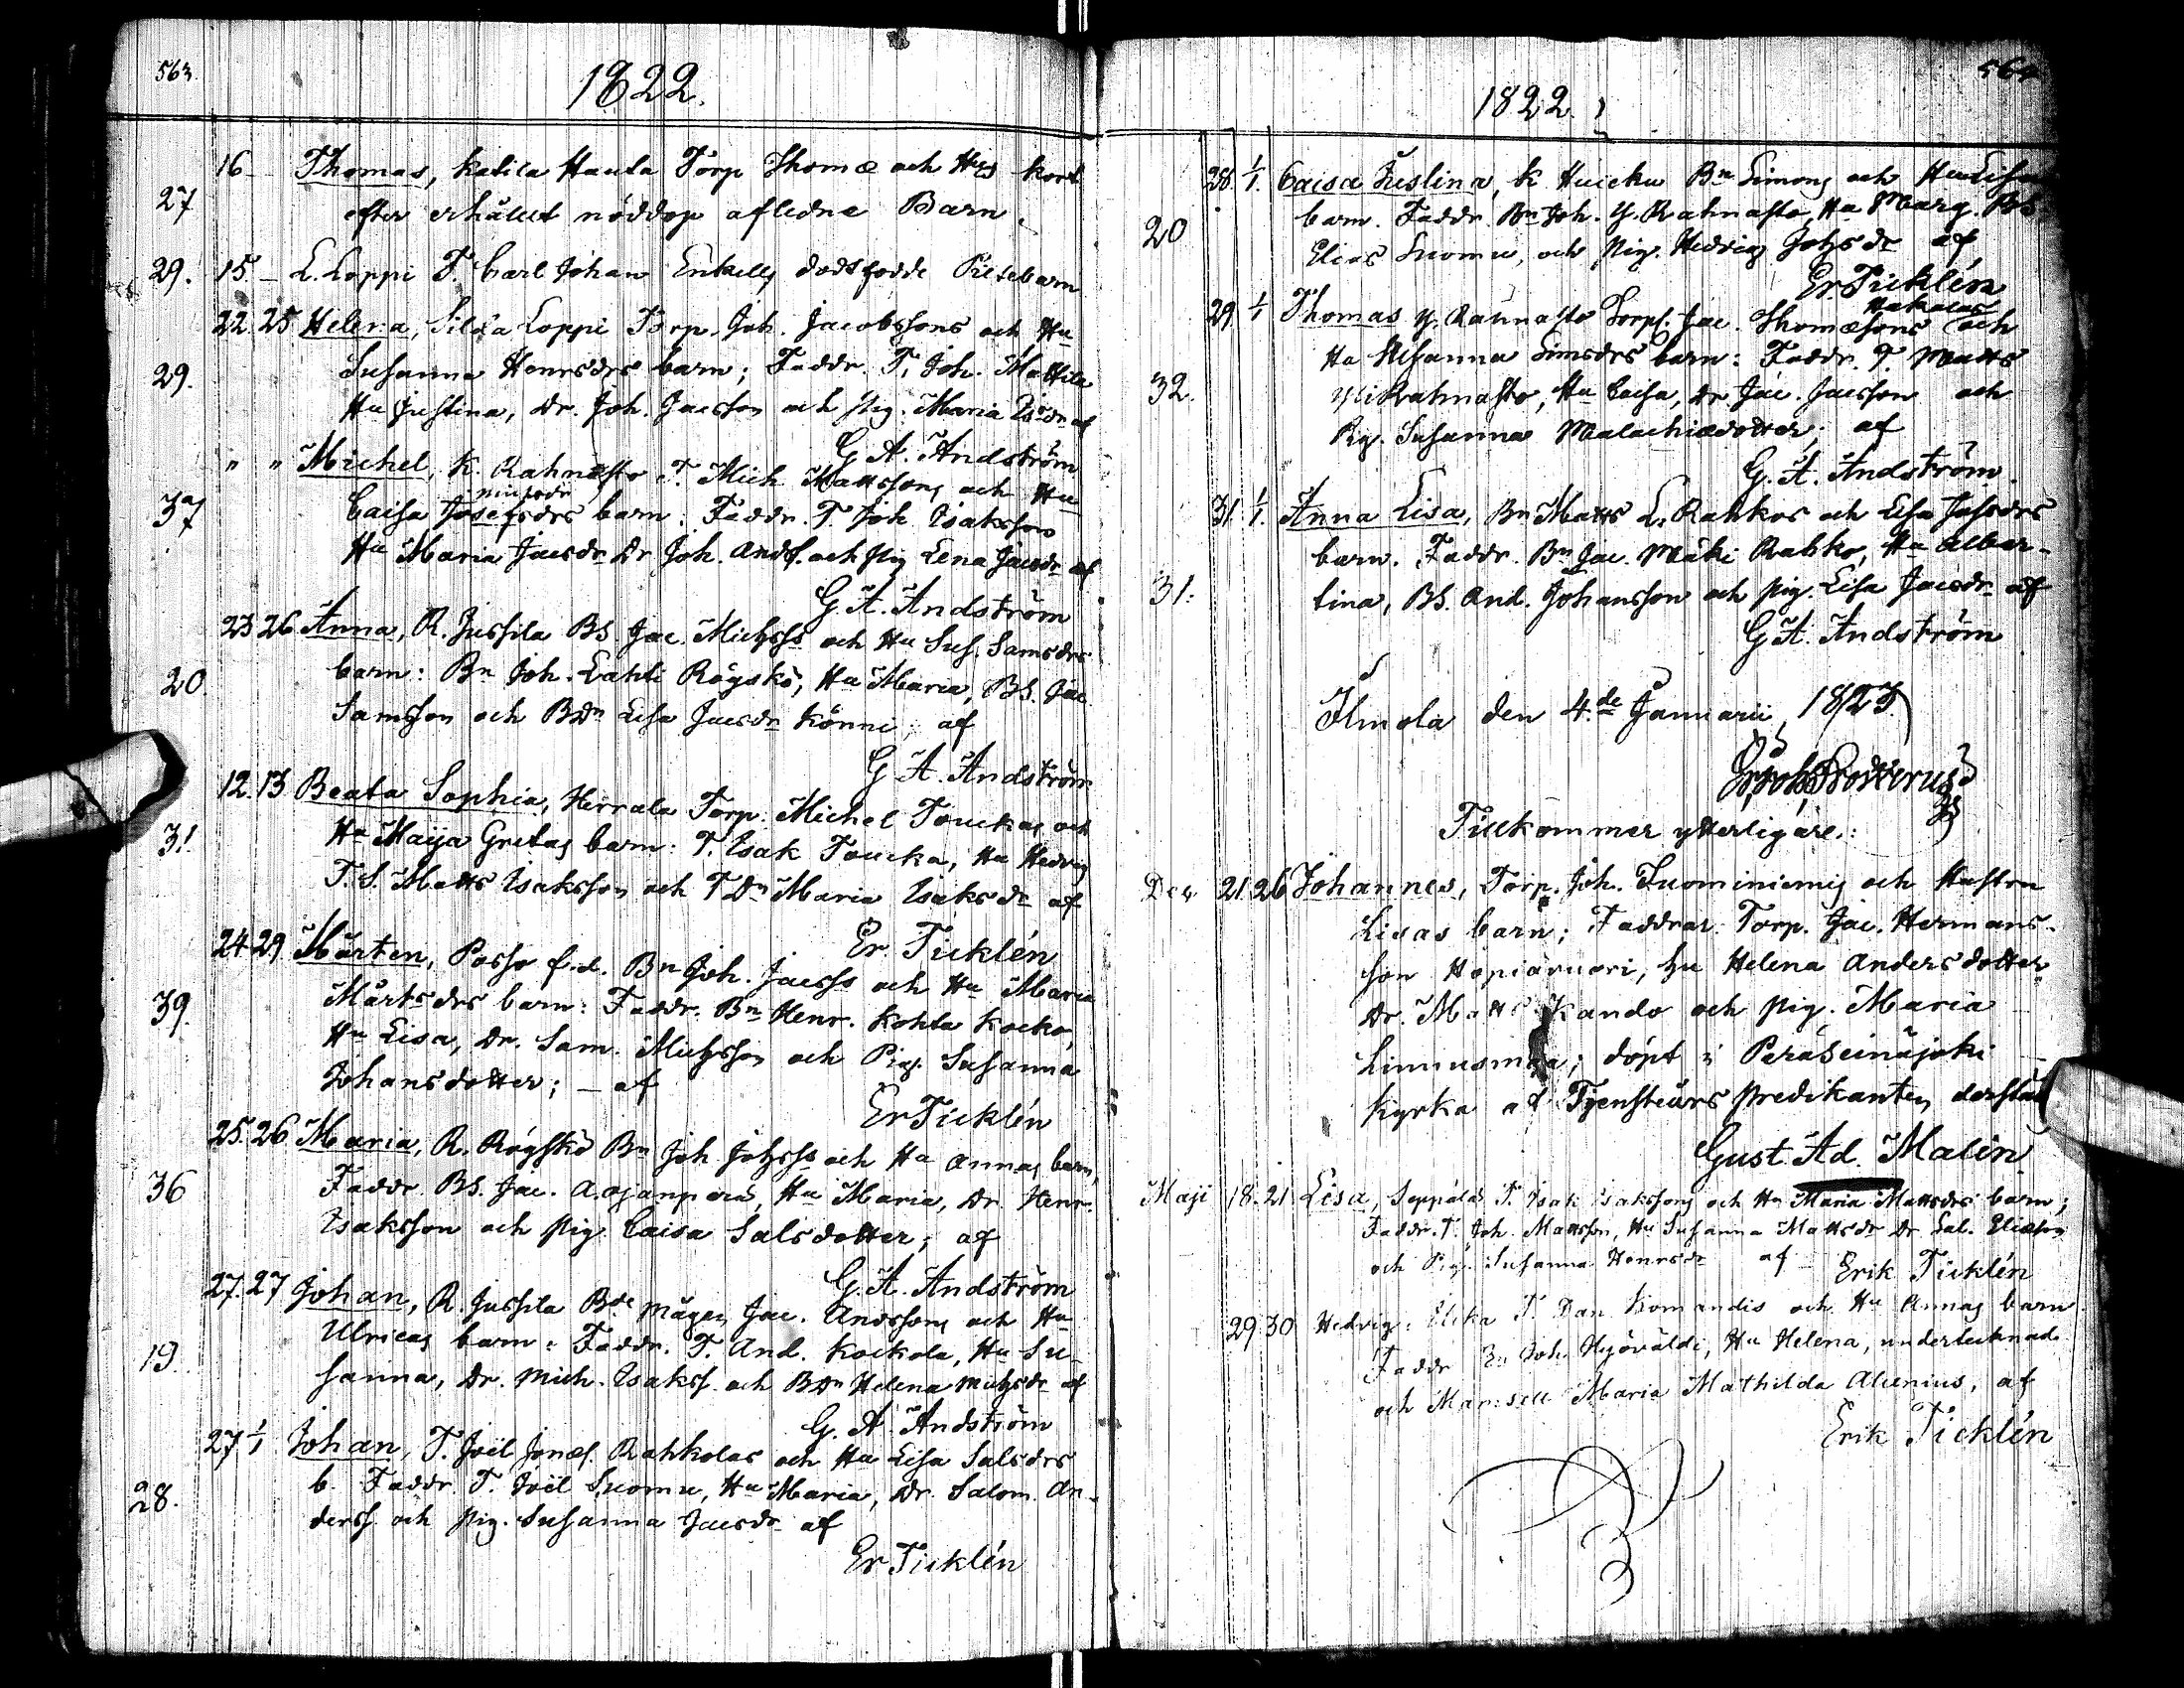 563.
1822.
16 Thomas, Katila Hauta Torp Thomæ och Hus kort
27 efter erhållet nöddop afledne Barn
29. 15. L. Loppi T. Carl Johan Enkells dödsfödde Piltebarn
22. 25 Helena, Loppi Torp. Joh. Jacobssons och Hu
29. Susanna Henrsdrs barn; Faddr. T. Joh. Mattila
Hu Justina, Dr. Joh. Jacsson och Pig. Maria af
G A. Andström
" " Michel, K. Rahnasto T. Mich. Mattssons och Hu
37 Caisa Josefsdrs barn. Faddr. T. Joh. Isaksson
Hu Maria Jacsdr Dr Joh. Andss. och pig Lena Jacsdr af
G A. Andström
23 26 Anna, R. Jussila BS. Jac. Michss och Hu Sus. Samsdrs
20. barn: Bn Joh. Lahti Rögskö, Hu Maria, BS. Jac.
Samsson och BDn Lisa Jacsdr Könni; af
G A. Andström
12. 13 Beata Sophia, Herrala Torp. Michel Touckas och
31. Hu Maija Gretas barn: T. Isak Toucka, Hu Hedvig
T. S. Matts Isaksson och TDn Maria Isaksdr af
Er. Ticklén
24 29 Mårten, Posso f.d. Bn Joh. Jacsss och Hu Maria
39. Mårtsdrs barn: Faddr. Bn Henr. Kohta Kocko,
Hu Lisa, Dr. Sam. Michsson och Pig. Susanna
Johansdotter; – af
Er Ticklén
25. 26 Maria, R. Rögskö Bn Joh. Johsss och Hu Annas barn,
36 Faddr. BS. Jac. Ajanpää, Hu Maria, Dr. Henr.
Isaksson och pig Caisa Salsdotter; af
G. A. Andström
27. 27 Johan, R. Jussila Bde mågen Jac. Andssons och Hu
19. Ulricas barn: Faddr. T. And. Kockola, Hu Su-
sanna, Dr. Mich. Isakss. och BDn Helena Michsdr af
G. A. Andström
27 1/1 Johan, T. Joël Jonæs. Rahkolas och Hu Lisa Salsdrs
28. b. Faddr. T. Joël Suomu, Hu Maria, Dr. Salom. An-
derss. och pig. Susanna Jacsdr af
Er Ticklén
564
1822.
28. 1/1. Caisa Justina, K. Huicku Bn Simons och Hu Lisas
20 barn. Faddr. Bn Joh. Y. Rahnasto, Hu Marg. BS
Elias Suomu, och pig. Hedvig Johsdr af
Er. Ticklén
29. 1/1 Thomas Y. Raunasto Torps. Jac. Thomæsons Hakolas och
Hu Susanna Simsdrs barn: Faddr. T. Matts
32. Yli Rahnasto, Hu Caisa, Dr Jac. Jacsson och
Pig. Susanna Malachiædotter; af
G. A. Andström.
31. 1/1. Anna Lisa, Bn Matts L. Rahkos och Lisa Jossdrs
barn. Faddr. Bn Jac. Mäki Rahko, Hu Alber-
31. tina, BS. And. Johansson och pig. Lisa Jacsdr af
G A. Andström
Ilmola den 4de Januarii 1823.
Er. Joh. Frosterus
Tillkommer ytterligare:
Dec. 21. 26 Johannes, Torp. Joh. Tuominiemis och Hustru
Lisas barn; Faddrar Torp. Jac. Hermans-
son Hopiavuori, hu Helena Andersdotter
Dr. Matts Kando och pig. Maria
Linnusmaa; döpt i Peräseinäjoki
Kyrka af Tjensteårs predikanten derstäd
Gust. Ad. Malin
Maji 18. 21 Lisa, Seppälä T. Isak Isakssons och Hu Maria Mattsdrs barn;
Faddr. T. Joh. Mattsson, Hu Susanna Mattsdr Dr. Sal. Eliæson
och Pig. Susanna Henrsdr af Erik Ticklén
29. 30 Hedvig, T. Dan. Komandis och Hu Annas barn
Faddr Bn Joh. Hyöväldi, Hu Helena, undertecknad
och Mamsell Maria Mathilda Alcenius, af
Erik Ticklén